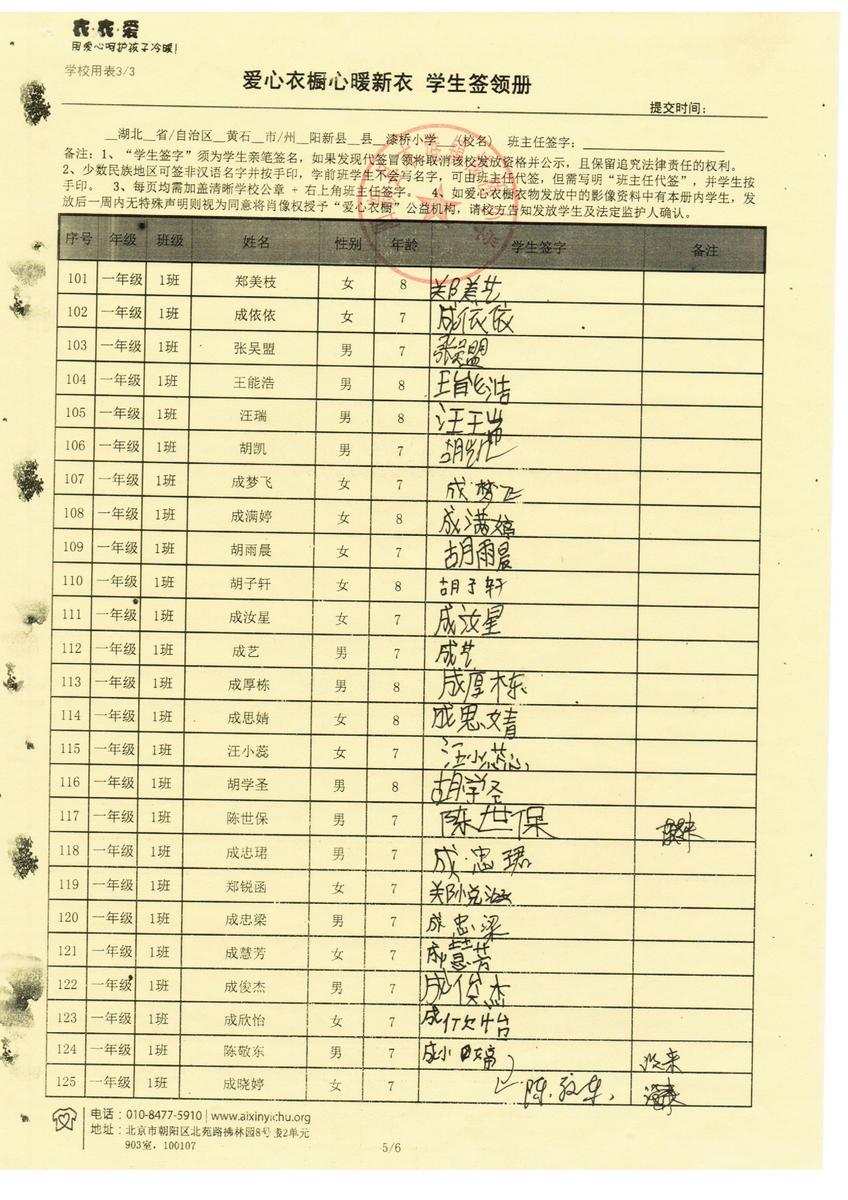 衣·衣·爱
用爱心呵护孩子冷暖!
学校用表3/3
爱心衣橱心暖新衣 学生签领册
提交时间:
__湖北__省/自治区__黄石__市/州__阳新县__县__漆桥小学__(校名) 班主任签字:
备注:1、“学生签字”须为学生亲笔签名,如果发现代签冒领将取消该校发放资格并公示,且保留追究法律责任的权利。
2、少数民族地区可签非汉语名字并按手印,学前班学生不会写名字,可由班主任代签,但需写明“班主任代签”,并学生按
手印。 3、每页均需加盖清晰学校公章 + 右上角班主任签字。 4、如爱心衣橱衣物发放中的影像资料中有本册内学生,发
放后一周内无特殊声明则视为同意将肖像权授予“爱心衣橱”公益机构,请校方告知发放学生及法定监护人确认。
序号 年级 班级 姓名 性别 年龄 学生签字 备注
101 一年级 1班 郑美枝 女 8 郑美艺
102 一年级 1班 成依依 女 7 成依依
103 一年级 1班 张吴盟 男 7 张吴盟
104 一年级 1班 王能浩 男 8 王能浩
105 一年级 1班 汪瑞 男 8 汪瑞
106 一年级 1班 胡凯 男 7 胡凯
107 一年级 1班 成梦飞 女 7 成梦飞
108 一年级 1班 成满婷 女 8 成满婷
109 一年级 1班 胡雨晨 女 7 胡雨晨
110 一年级 1班 胡子轩 女 8 胡子轩
111 一年级 1班 成汝星 女 7 成汝星
112 一年级 1班 成艺 男 7 成艺
113 一年级 1班 成厚栋 男 8 成厚栋
114 一年级 1班 成思婧 女 8 成思婧
115 一年级 1班 汪小蕊 女 7 汪小蕊
116 一年级 1班 胡学圣 男 8 胡学圣
117 一年级 1班 陈世保 男 7 陈世保
118 一年级 1班 成忠珺 男 7 成忠珺
119 一年级 1班 郑锐函 女 7 郑锐函
120 一年级 1班 成忠梁 男 7 成忠梁
121 一年级 1班 成慧芳 女 7 成慧芳
122 一年级 1班 成俊杰 男 7 成俊杰
123 一年级 1班 成欣怡 女 7 成欣怡
124 一年级 1班 陈敬东 男 7 成小婷
125 一年级 1班 成晓婷 女 7 陈敬东
电话:010-8477-5910 | www.aixinyichu.org
地址:北京市朝阳区北苑路拂林园8号楼2单元
903室,100107
5/6